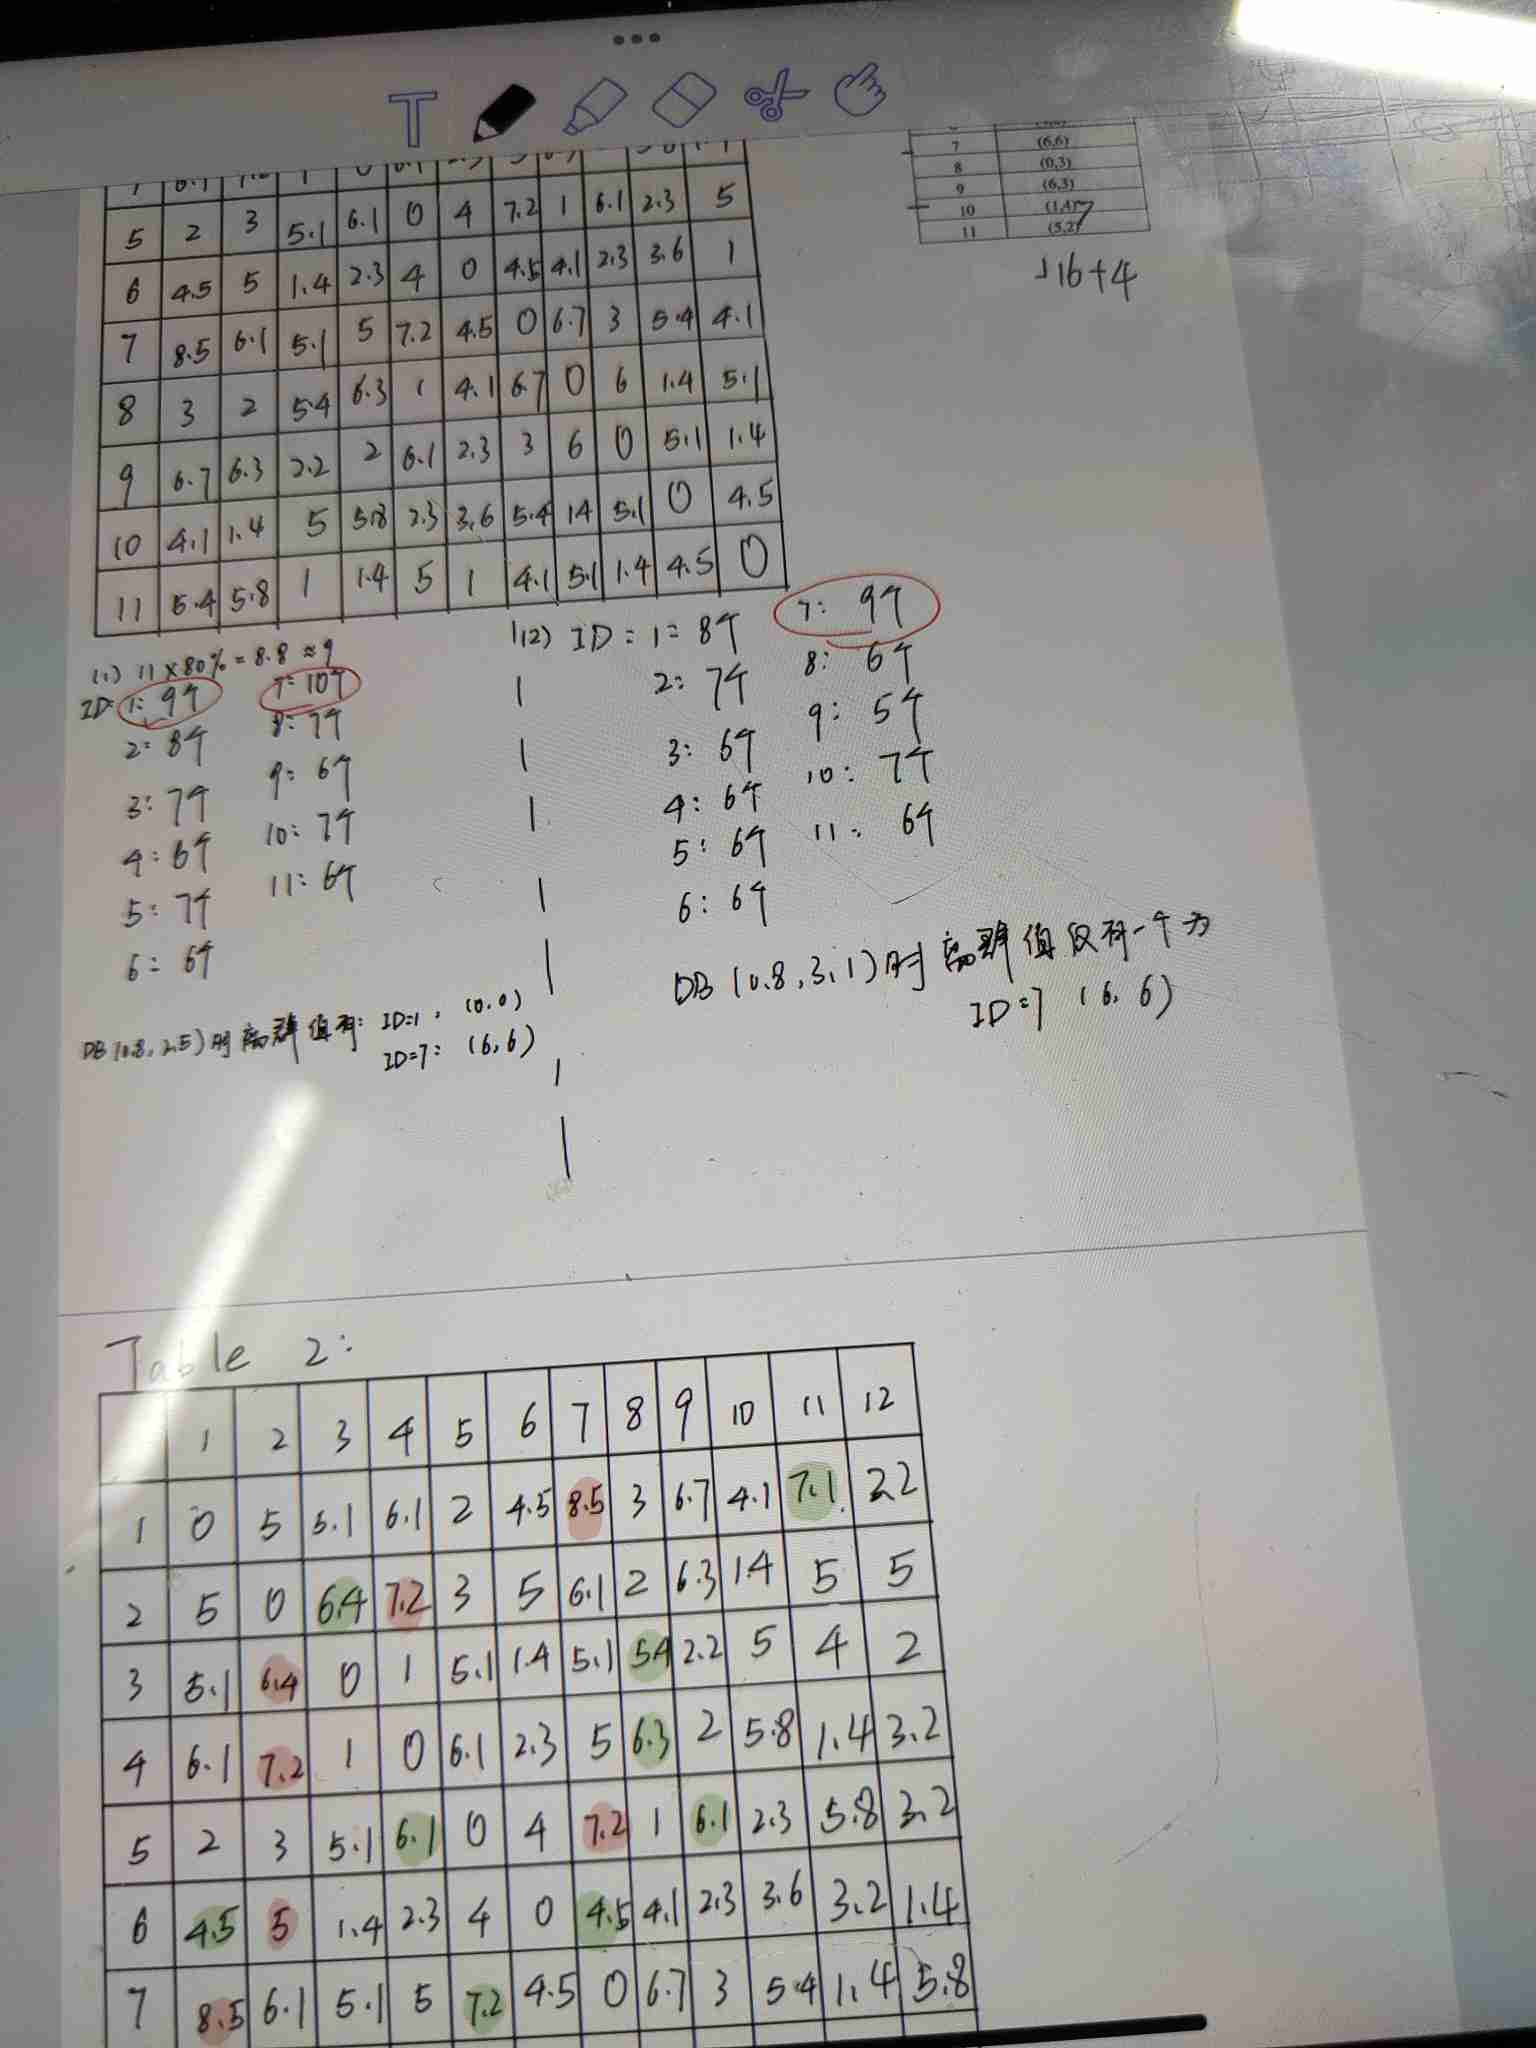 5 2 3 5.1 6.1 0 4 7.2 1 6.1 2.3 5
6 4.5 5 1.4 2.3 4 0 4.5 4.1 2.3 3.6 1
7 8.5 6.1 5.1 5 7.2 4.5 0 6.7 3 5.4 4.1
8 3 2 5.4 6.3 1 4.1 6.7 0 6 1.4 5.1
9 6.7 6.3 2.2 2 6.1 2.3 3 6 0 5.1 1.4
10 4.1 1.4 5 5.8 2.3 3.6 5.4 14 5.1 0 4.5
11 5.4 5.8 1 1.4 5 1 4.1 5.1 1.4 4.5 0
7 (6,6)
8 (0,3)
9 (6,3)
10 (1,4)
11 (5,2)
√16+4
(1) 11×80%=8.8≈9
ID: 1: 9个 7: 10个
2: 8个 8: 7个
3: 7个 9: 6个
4: 6个 10: 7个
5: 7个 11: 6个
6: 6个
DB(0.8, 2.5)时离群值有: ID=1: (0,0)
ID=7: (6,6)
(2) ID: 1: 8个 7: 9个
2: 7个 8: 6个
3: 6个 9: 5个
4: 6个 10: 7个
5: 6个 11: 6个
6: 6个
DB(0.8, 3,1)时离群值仅有一个为
ID=7 (6,6)
Table 2:
1 2 3 4 5 6 7 8 9 10 11 12
1 0 5 5.1 6.1 2 4.5 8.5 3 6.7 4.1 7.1 2.2
2 5 0 6.4 7.2 3 5 6.1 2 6.3 1.4 5 5
3 5.1 6.4 0 1 5.1 1.4 5.1 5.4 2.2 5 4 2
4 6.1 7.2 1 0 6.1 2.3 5 6.3 2 5.8 1.4 3.2
5 2 3 5.1 6.1 0 4 7.2 1 6.1 2.3 5.8 3.2
6 4.5 5 1.4 2.3 4 0 4.5 4.1 2.3 3.6 3.2 1.4
7 8.5 6.1 5.1 5 7.2 4.5 0 6.7 3 5.4 1.4 5.8